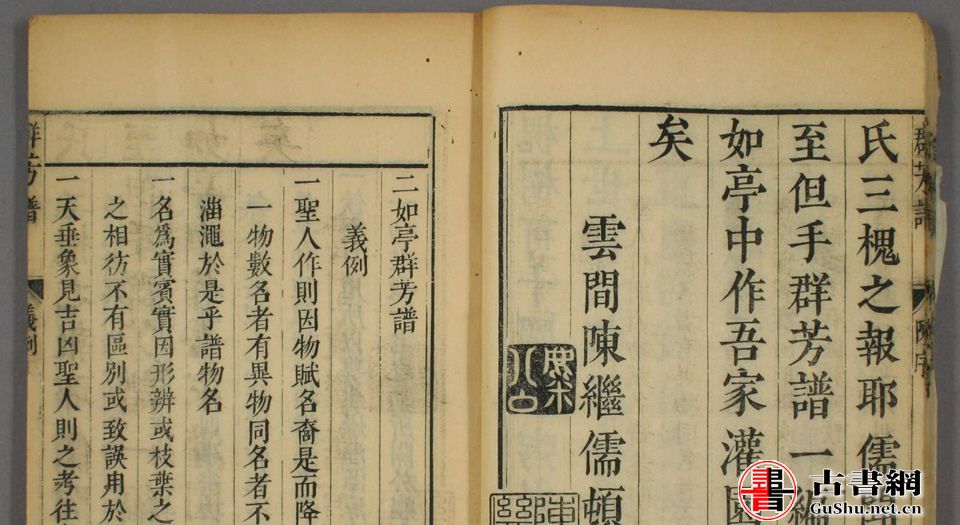 氏三槐之報耶儒
至但手群芳譜一編
如亭中作吾家灌園
矣
雲間陳繼儒頓
二如亭群芳譜
義例
一聖人作則因物賦名裔是而降
一物數名者有異物同名者不
淄澠於是乎譜物名
一名為實賓實因形辨或枝葉之
之相彷不有區別或致誤用於
一天垂象見吉凶聖人則之考往
群芳譜
義例
書
古書網
GuShu.net.cn